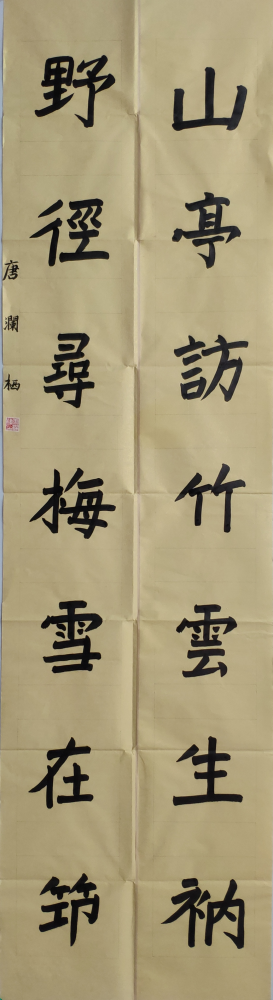 山亭訪竹雲生衲
野徑尋梅雪在笻
唐瀾栖